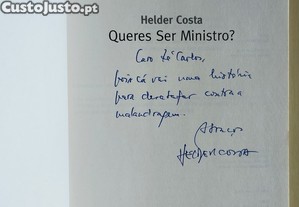 CustoJusto.pt
Helder Costa
Queres Ser Ministro?
Caro Zé Carlos,
pois cá vai uma história
para desabafar contra a
malandragem.
Abraço
HELDER COSTA